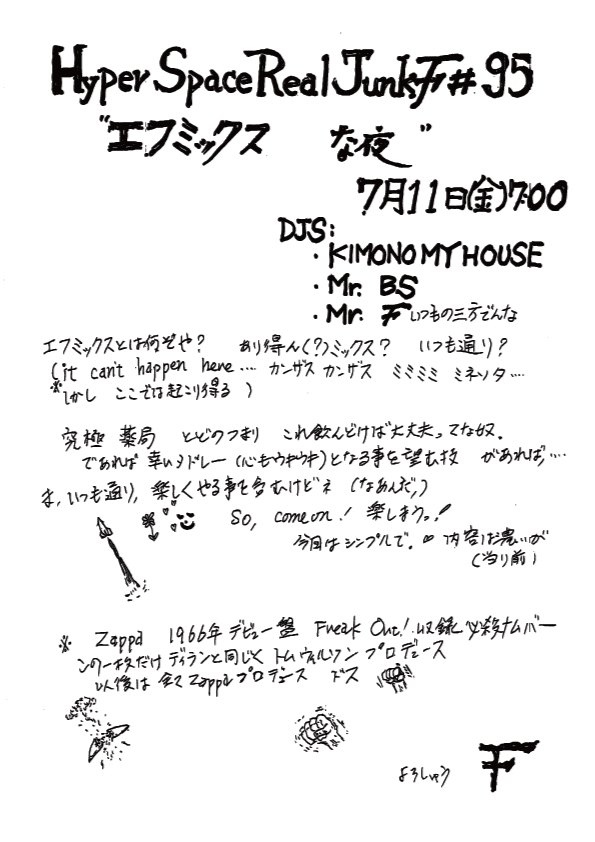 Hyper Space Real Junk F # 95
"エフミックス な夜"
7月11日(金)7:00
DJS:
・KIMONO MY HOUSE
・Mr. BS
・Mr. F いつもの三方でんな
エフミックスとは何ぞや? あり得ん(?)ミックス? いつも通り?
(it can't happen here... カンザス カンザス ミミミミ ミネソタ....
※しかし ここでは起こり得る )
究極 薬局 とどのつまり これ飲んどけば大丈夫ってな奴.
であれば 幸いヌドレー (心もウキウキ)となる事を望む 次第
ま、いつも通り, 楽しくやる事を含むけどネ (なあんだ,)
So, come on! 楽しもうっ!
今回はシンプルで. 内容は濃いが
(当り前)
※ Zappa 1966年 デビュー盤 Freak Out! 収録 必殺ナムバー
この一枚だけ ディランと同じく トム ウィルソン プロデュース
以後は 全て Zappa プロデュース ドス
よろしゅう F